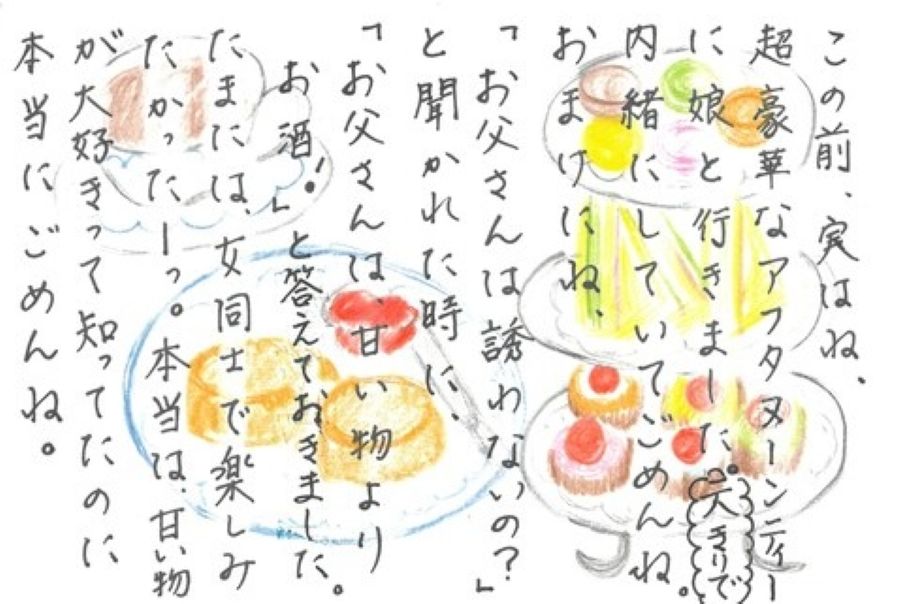 この前、実はね、
超豪華なアフタヌーンティー
に娘と行きました。二人きりで
内緒にしていてごめんね。
おまけにね、
「お父さんは誘わないの？」
と聞かれた時に、
「お父さんは、甘い物より
お酒！」と答えておきました。
たまには、女同士で楽しみ
たかったーっ。本当は、甘い物
が大好きって知ってたのに
本当にごめんね。